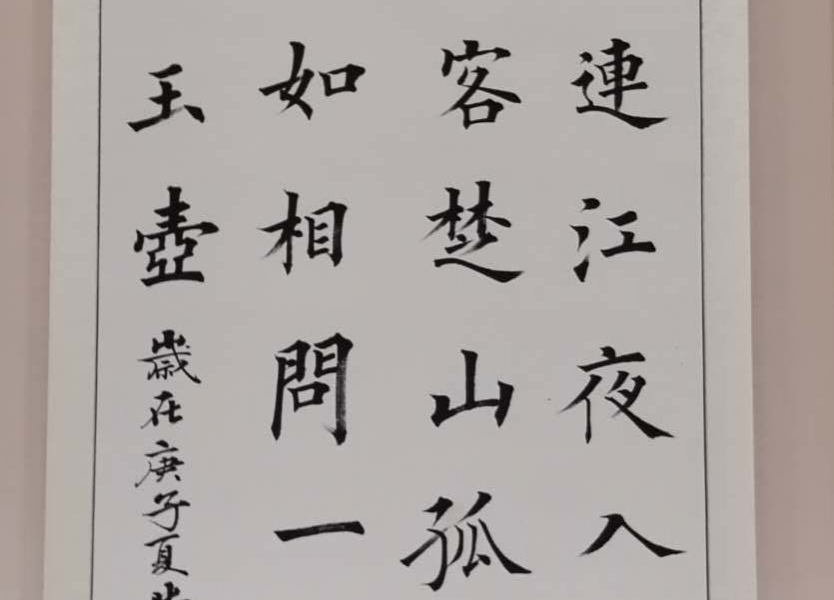 連江夜入
客楚山孤
如相問一
玉壺
歲在庚子夏